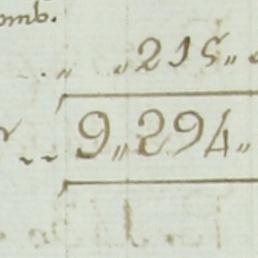 omb.
„ „215„
9„294„